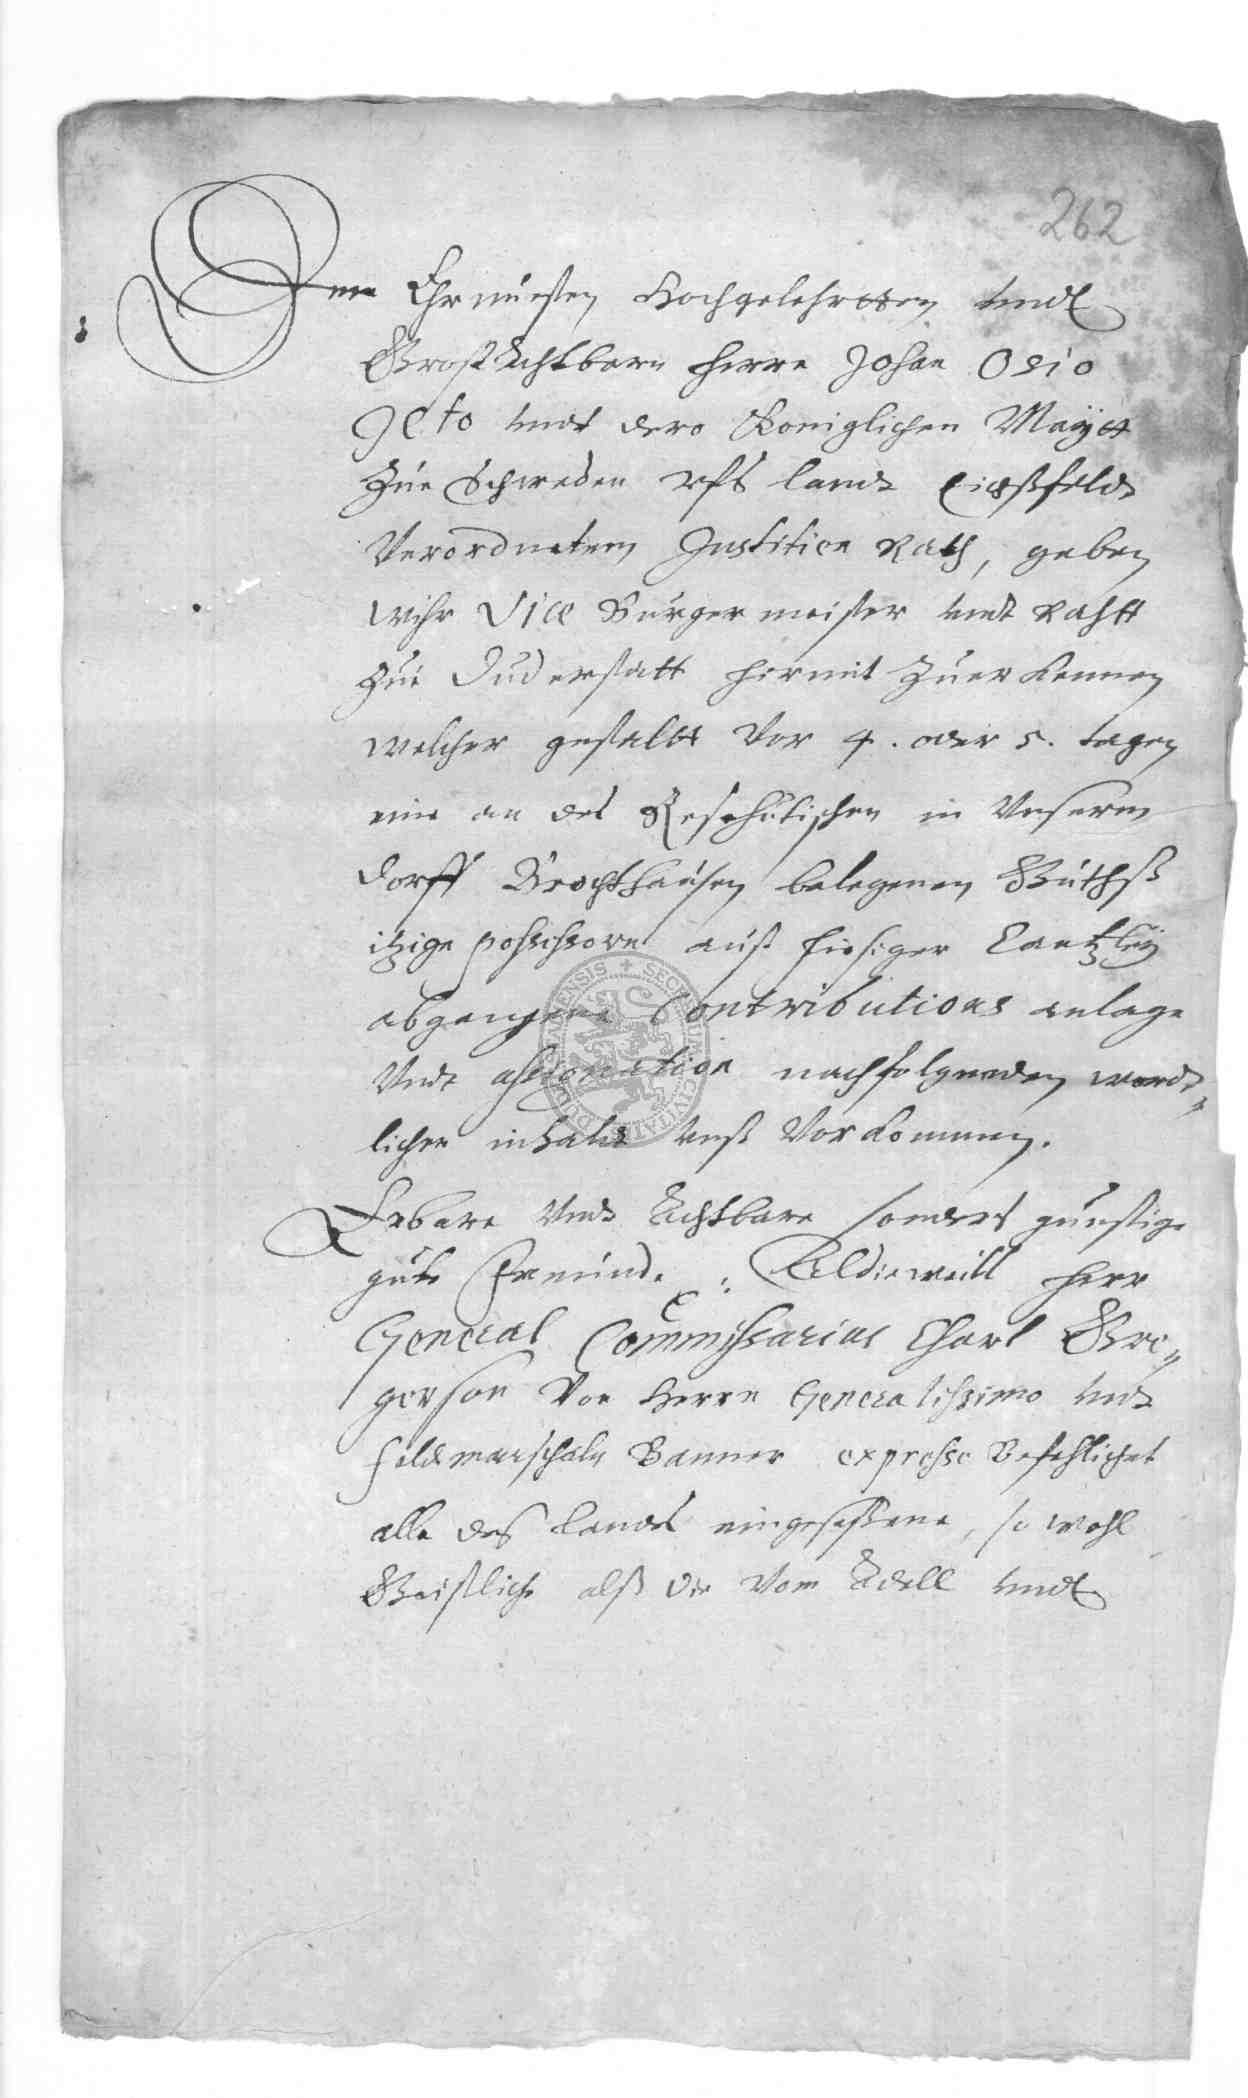 262
Dem Ehrnuesten Hochgelehrtten undt
Großachtbarn Herrn Johan Osio
Icto undt dero Königlichen Maÿtt
Zue Schweden ufs landt Eichßfeldt
Verordnetem Justitien Rath, geben
wihr Vice Bürgermeister undt Rahtt
Zue Duderstatt hiermit Zuerkennen
welcher gestaltt vor 4. oder 5. tagen
eine an des in Unserm
dorff Brochthausen belegenen Güthß
itzige possessorn auß hiesiger Cantzleÿ
abgangene Contributions anlage
Undt assignation nachfolgenden wordt-
lichen inhalts unß Vorkommen.
Erbare Undt Achtbare sonders günstige
gute Freund. Alldieweill Herr
General Commissarius Charl Gre-
gerson Von Herrn Generalissimo undt
feldmarschaln Banner expresse Befehlichet
alle des landes eingesessene, so wohl
Geistliche alß die Vom Adell undt
SECRETUM CIVITATIS DUDERSTADENSIS